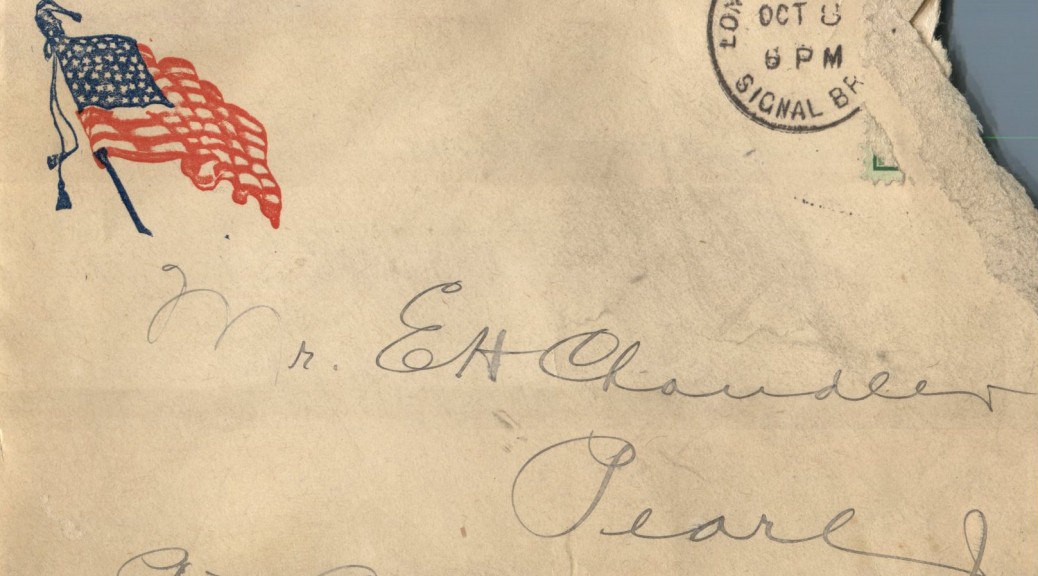 OCT 8
6 PM
SIGNAL BR
Mr. EH Chandler
Pearl